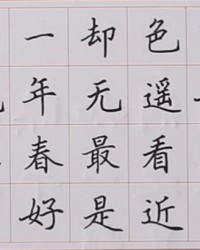 色遥看近
却无最是
一年春好